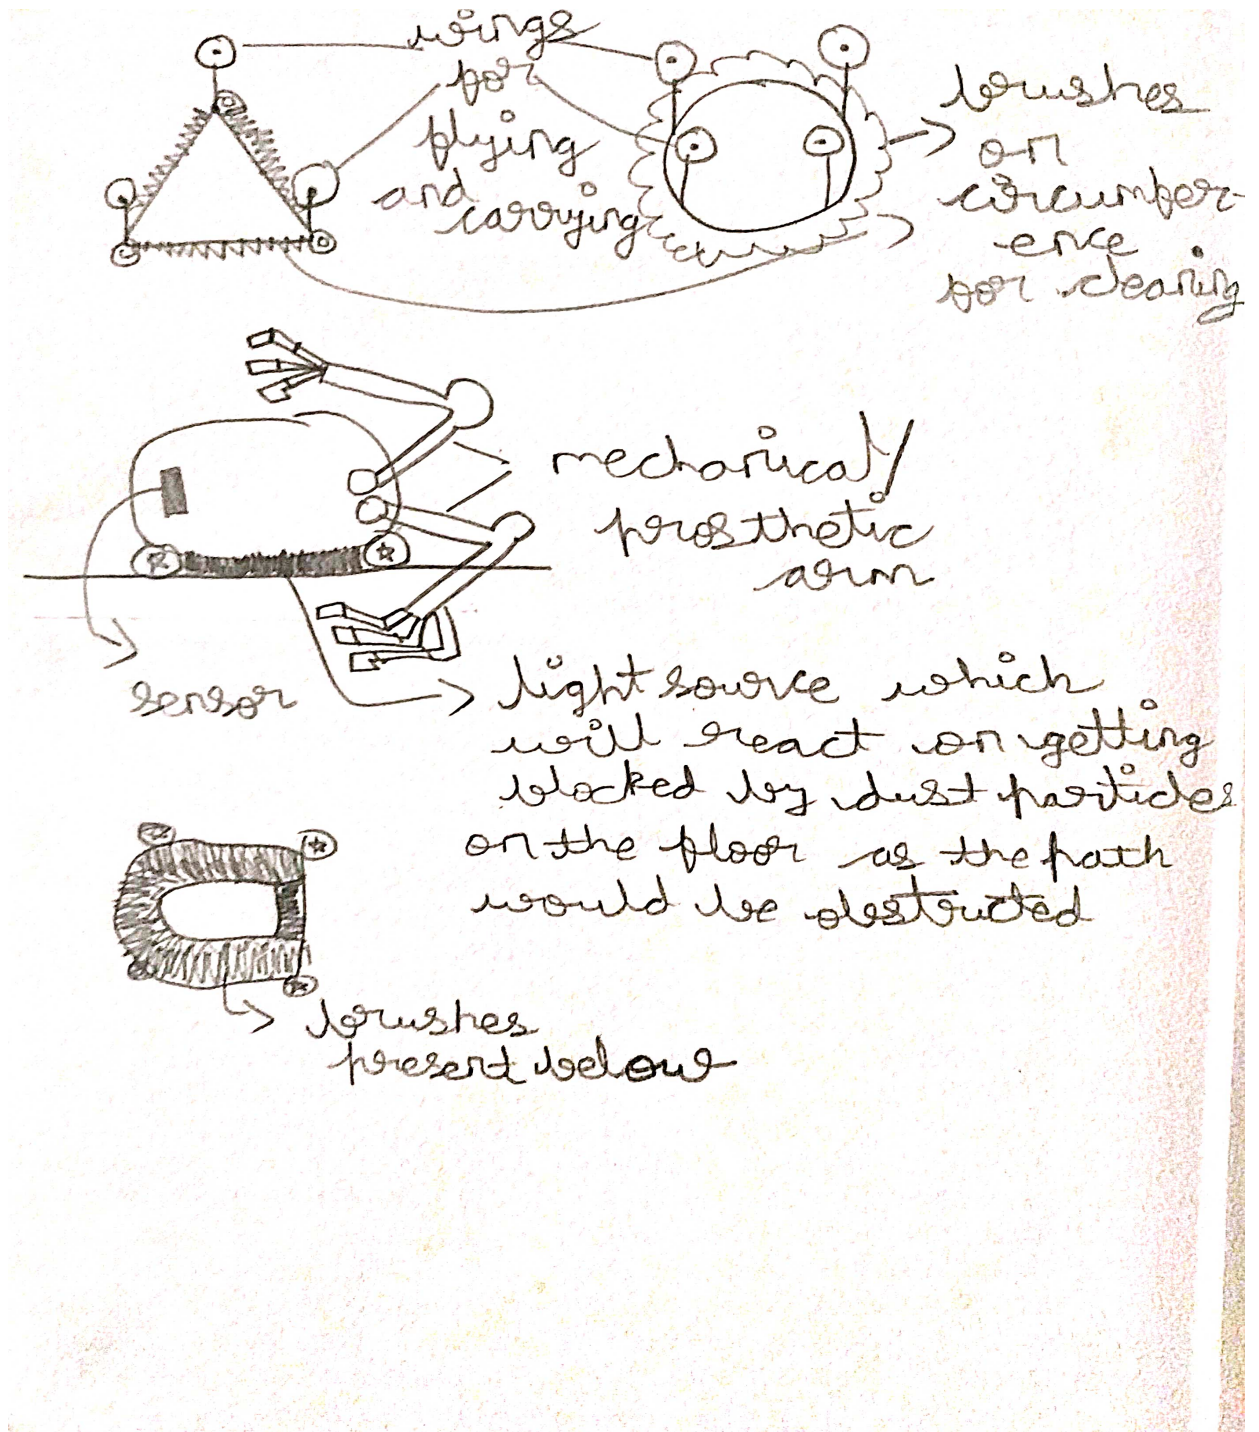 wings
for
flying
and
carrying
brushes
on
circumfer-
ence
for cleaning
mechanical/
prosthetic
arm
sensor
light source which
will react on getting
blocked by dust particles
on the floor as the path
would be obstructed
brushes
present below